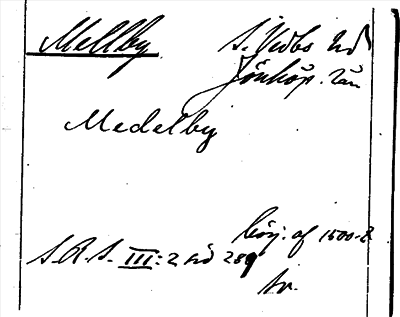 Mellby. S. Vedbo hd
Jönköp. län
Medelby
börj. af 1500-t.
S.R.S. III:2 sid 289